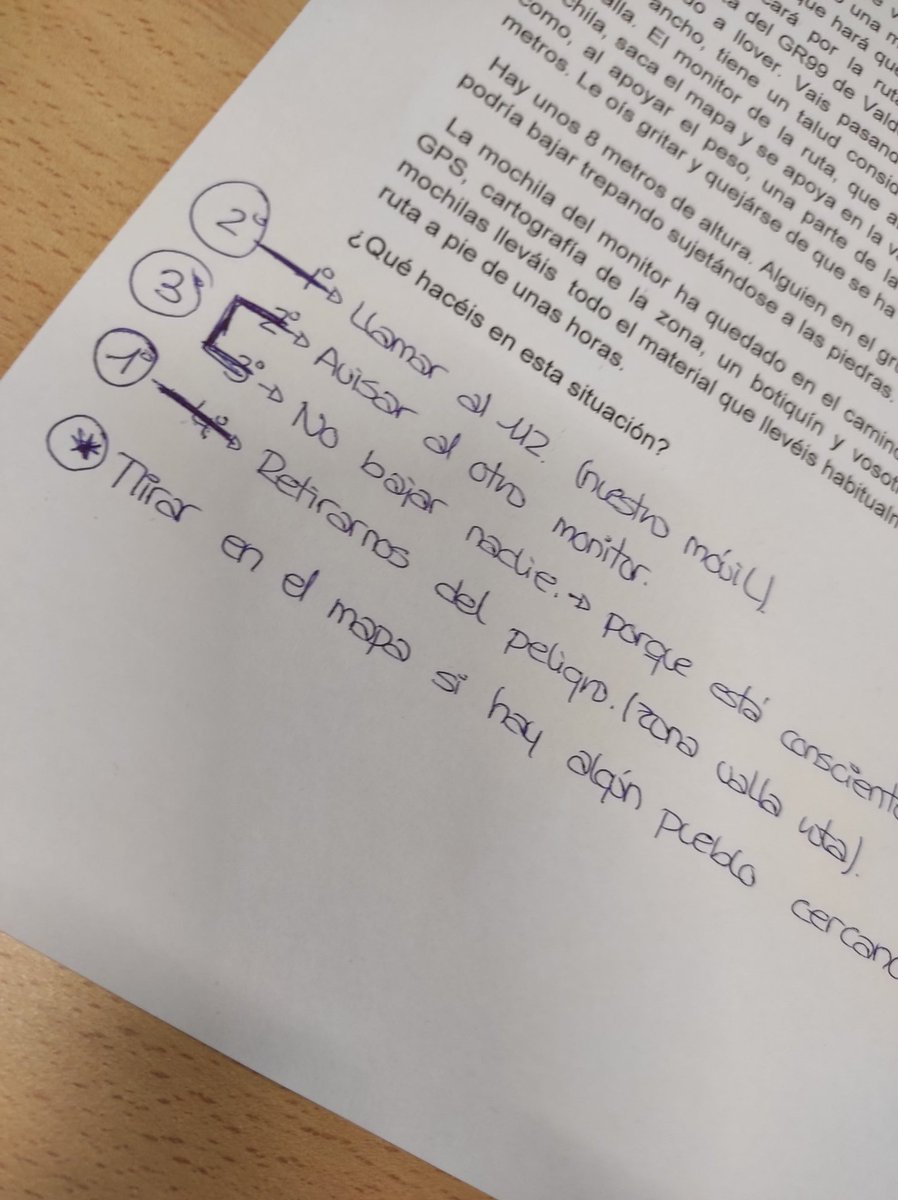 una
que hará que
cará por la ruta
ta del GR99 de Vald
do a llover. Vais pasando
ancho, tiene un talud consid
alla. El monitor de la ruta, que a
chila, saca el mapa y se apoya en la v
como, al apoyar el peso, una parte de la
metros. Le oís gritar y quejárse de que se ha
Hay unos 8 metros de altura. Alguien en el gru
podría bajar trepando sujetándose a las piedras.
La mochila del monitor ha quedado en el camino
GPS, cartografía de la zona, un botiquín y vosotr
mochilas lleváis todo el material que llevéis habitualm
ruta a pie de unas horas.
¿Qué hacéis en esta situación?
2º 1º → Llamar al 112. (nuestro móvil)
3º 2º → Avisar al otro monitor.
3º → No bajar nadie. → porque está consciente
1º 4º → Retirarnos del peligro. (zona valla rota).
* Mirar en el mapa si hay algún pueblo cercano